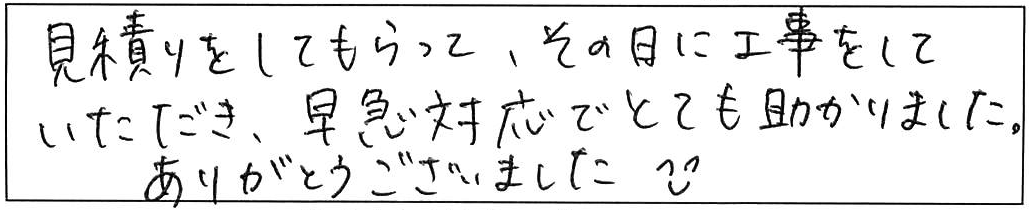 見積りをしてもらって、その日に工事をして
いただき、早急対応でとても助かりました。
ありがとうございました